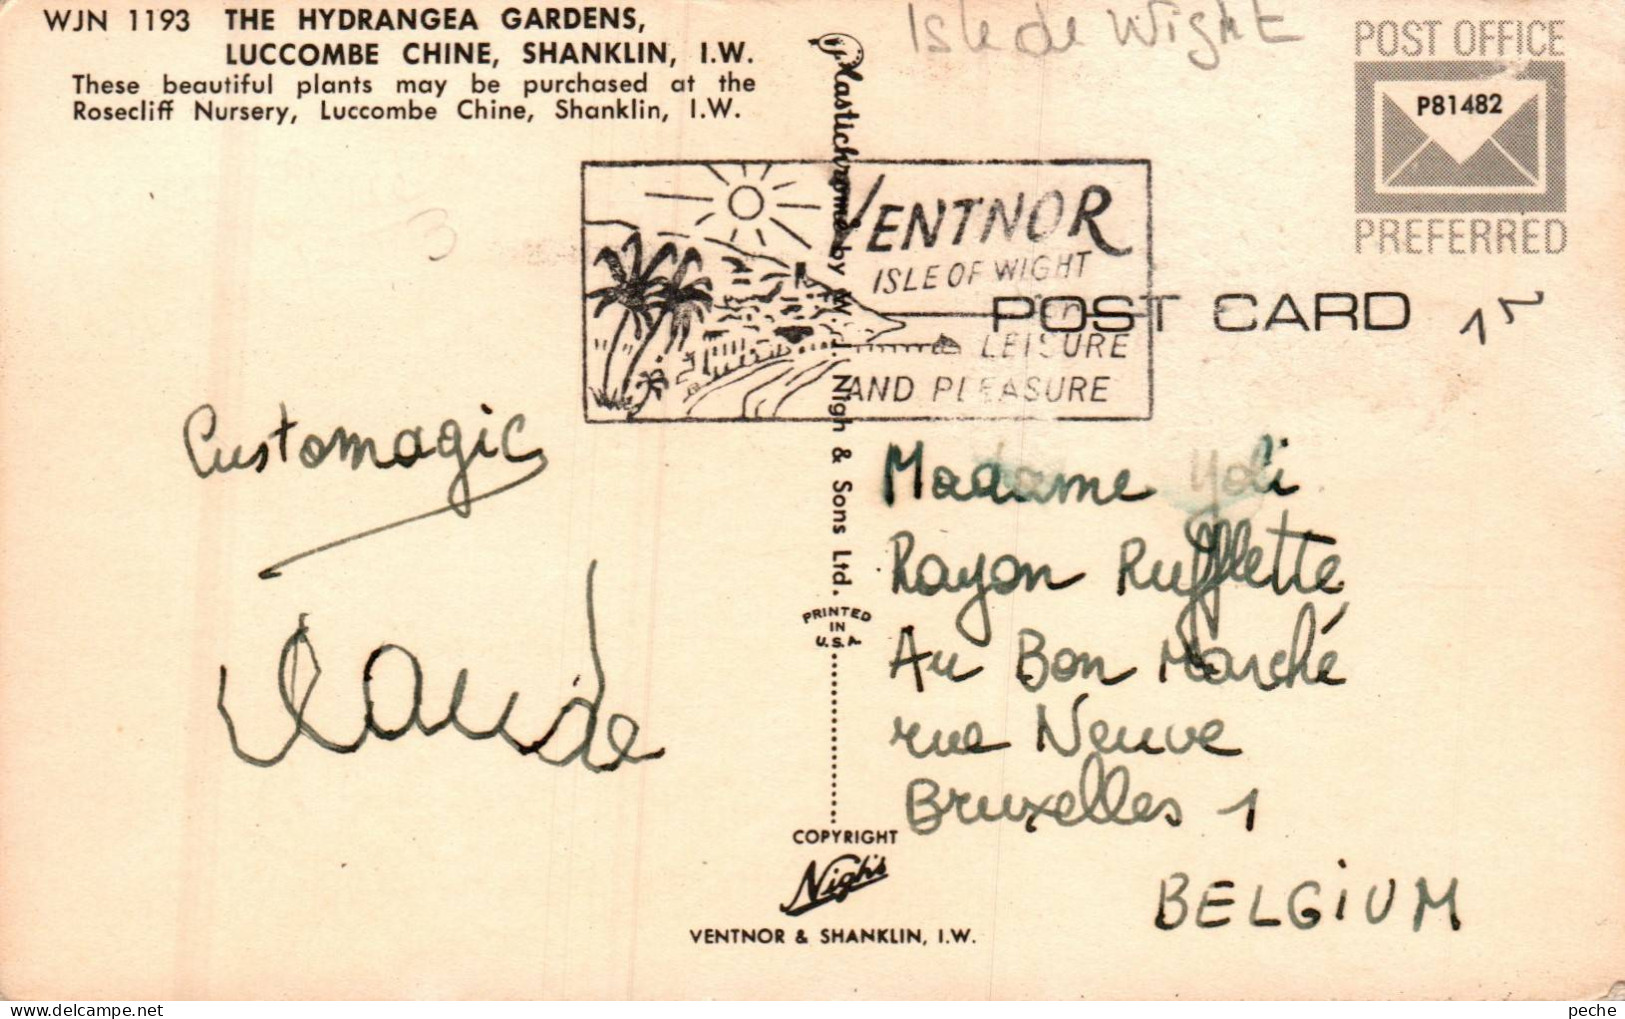 WJN 1193 THE HYDRANGEA GARDENS,
LUCCOMBE CHINE, SHANKLIN, I.W.
These beautiful plants may be purchased at the
Rosecliff Nursery, Luccombe Chine, Shanklin, I.W.
Isle de Wight
POST OFFICE
P81482
PREFERRED
VENTNOR
ISLE OF WIGHT
for
LEISURE
AND PLEASURE
POST CARD
3
Plastichrome by W. J. Nigh & Sons Ltd.
PRINTED
IN
U.S.A.
Customagic
Claude
Madame Yoli
Rayon Rufflette
Au Bon Marché
rue Neuve
Bruxelles 1
BELGIUM
COPYRIGHT
Nigh's
VENTNOR & SHANKLIN, I.W.
peche
delcampe.net